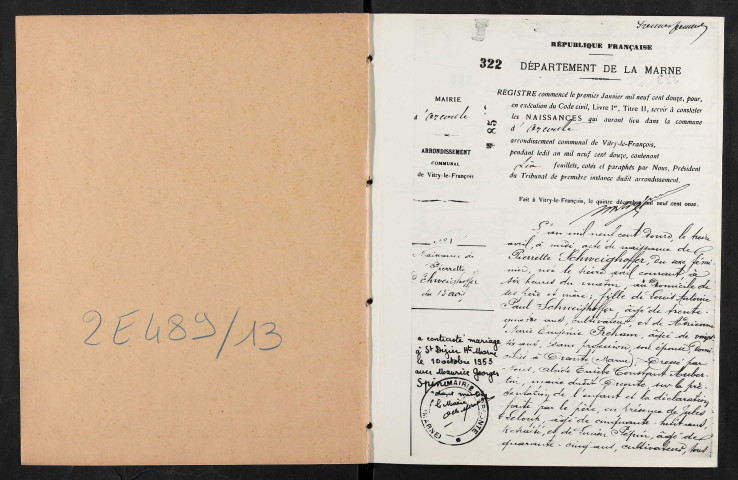 2E489/13
RÉPUBLIQUE FRANÇAISE
322 DÉPARTEMENT DE LA MARNE
MAIRIE
ARRONDISSEMENT
COMMUNAL
de Vitry-le-François
REGISTRE commencé le premier Janvier mil neuf cent douze, pour,
en exécution du Code civil, Livre Ier, Titre II, servir à constater
les NAISSANCES qui auront lieu dans la commune
d'
arrondissement communal de Vitry-le-François,
pendant ledit an mil neuf cent douze, contenant
feuillets, cotés et paraphés par Nous, Président
du Tribunal de première instance dudit arrondissement.
Fait à Vitry-le-François, le quinze décembre mil neuf cent onze.
N° 1
Naissance de
Pierrette
Schweighoffer
du 13 avril
a contracté mariage
à St Dizier Hte Marne
le 10 octobre 1953
avec Maurice Georges
MAIRIE
(MARNE)
L'an mil neuf cent douze, le treize
avril, à midi, acte de naissance de
Pierrette Schweighoffer, du sexe fémi-
nin, née le treize avril courant, à
six heures du matin, au domicile de
ses père et mère; fille de Louis Antoine
Paul Schweighoffer, âgé de trente
ans, cultivateur, et de
Marie Eugénie âgée de vingt
six ans, sans profession, son épouse, domi-
ciliés à (Marne); Dressé par
Nous, Constant Auber-
tin, maire dudit sur la pré-
sentation de l'enfant et la déclaration
faite par le père, en présence de Jules
âgé de cinquante-huit ans,
retraité, et de Lucien Pépin, âgé de
quarante-cinq ans, cultivateur, tous